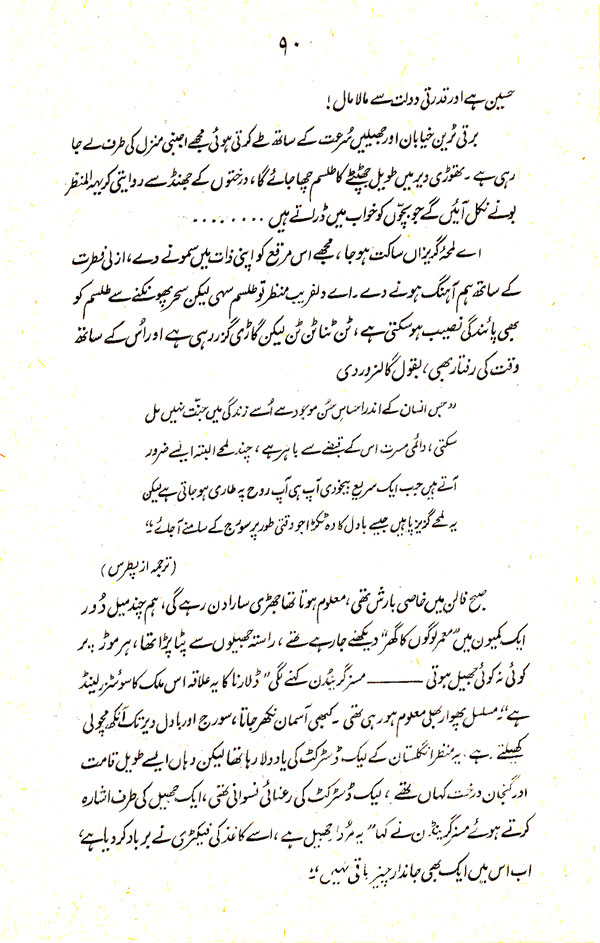 ۹۰
حسین ہے اور قدرتی دولت سے مالا مال!
برقی ٹرین خیابان اور جھیلیں سُرعت کے ساتھ طے کرتی ہوئی مجھے اجنبی منزل کی طرف لے جا
رہی ہے ۔ تھوڑی دیر میں طویل جھٹپٹے کا طلسم چھا جائے گا، درختوں کے جھنڈ سے روایتی کریہہ المنظر
بونے نکل آئیں گے جو بچّوں کو خواب میں ڈراتے ہیں ........
اے لمحۂ گریزاں ساکت ہو جا ، مجھے اس مرقع کو اپنی ذات میں سمونے دے، ازلی فطرت
کے ساتھ ہم آہنگ ہونے دے ۔ اے دلفریب منظر تو طلسم سہی لیکن سحر پھونکنے سے طلسم کو
بھی پائندگی نصیب ہو سکتی ہے ، ٹن ٹنا ٹن ٹن لیکن گاڑی گزر رہی ہے اور اُس کے ساتھ
وقت کی رفتار بھی ، بقول گالزوردی
" جس انسان کے اندر احساسِ حسُن موجود ہے اُسے زندگی میں جنّت نہیں مل
سکتی ، دائمی مسرت اس کے قبضے سے باہر ہے ، چند لمحے البتہ ایسے ضرور
آتے ہیں جب ایک سریع بیخودی آپ ہی آپ روح پہ طاری ہو جاتی ہے لیکن
یہ لمحے گریز پا ہیں جیسے بادل کا وہ ٹکڑا جو وقتی طور پر سورج کے سامنے آ جائے ۔"
(ترجمہ از پطرس)
صبح فالن میں خاصی بارش تھی ، معلوم ہوتا تھا جھڑی سارا دن رہے گی ، ہم چند میل دُور
ایک کمیون میں "معمر لوگوں کا گھر" دیکھنے جا رہے تھے ، راستہ جھیلوں سے پٹا پڑا تھا ، ہر موڑ پر
کوئی نہ کوئی جھیل ہوتی ——— مسز گرینڈن کہنے لگی "ڈلارنا کا یہ علاقہ اس ملک کا سوئٹزرلینڈ
ہے" ۔ مسلسل پھوار بھلی معلوم ہو رہی تھی ۔ کبھی آسمان نکھر جاتا ، سورج اور بادل دیر تک آنکھ مچولی
کھیلتے رہے ۔ یہ منظر انگلستان کے لیک ڈسٹرکٹ کی یاد دلا رہا تھا لیکن وہاں ایسے طویل قامت
اور گنجان درخت کہاں تھے ، لیک ڈسٹرکٹ کی رعنائی نسوانی تھی ، ایک جھیل کی طرف اشارہ
کرتے ہوئے مسز گرینڈن نے کہا "یہ مردا جھیل ہے ، اسے کاغذ کی فیکٹری نے برباد کر دیا ہے ،
اب اس میں ایک بھی جاندار چیز باقی نہیں ۔"